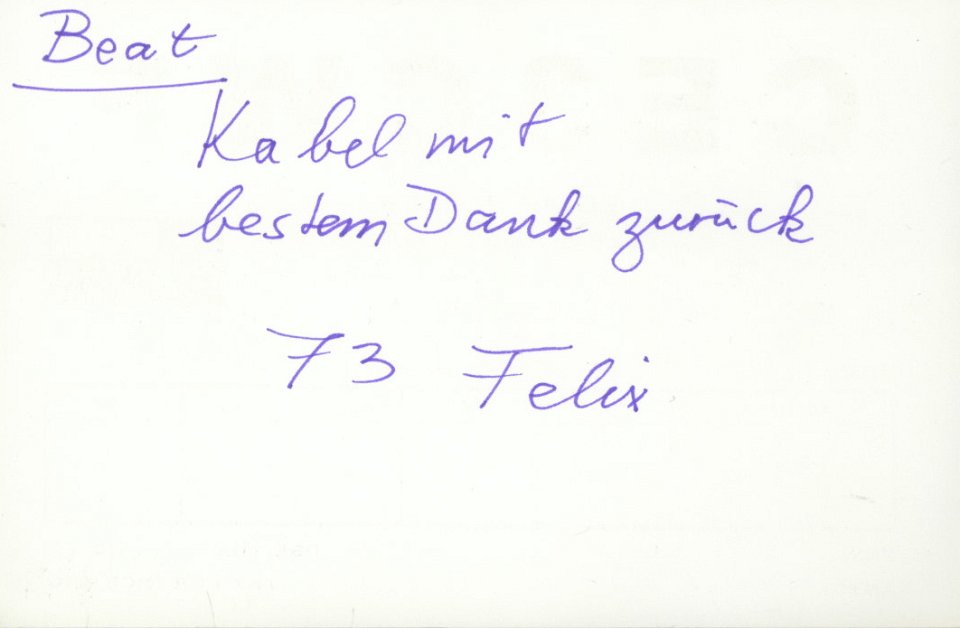 Beat
Kabel mit
bestem Dank zurück
73 Felix